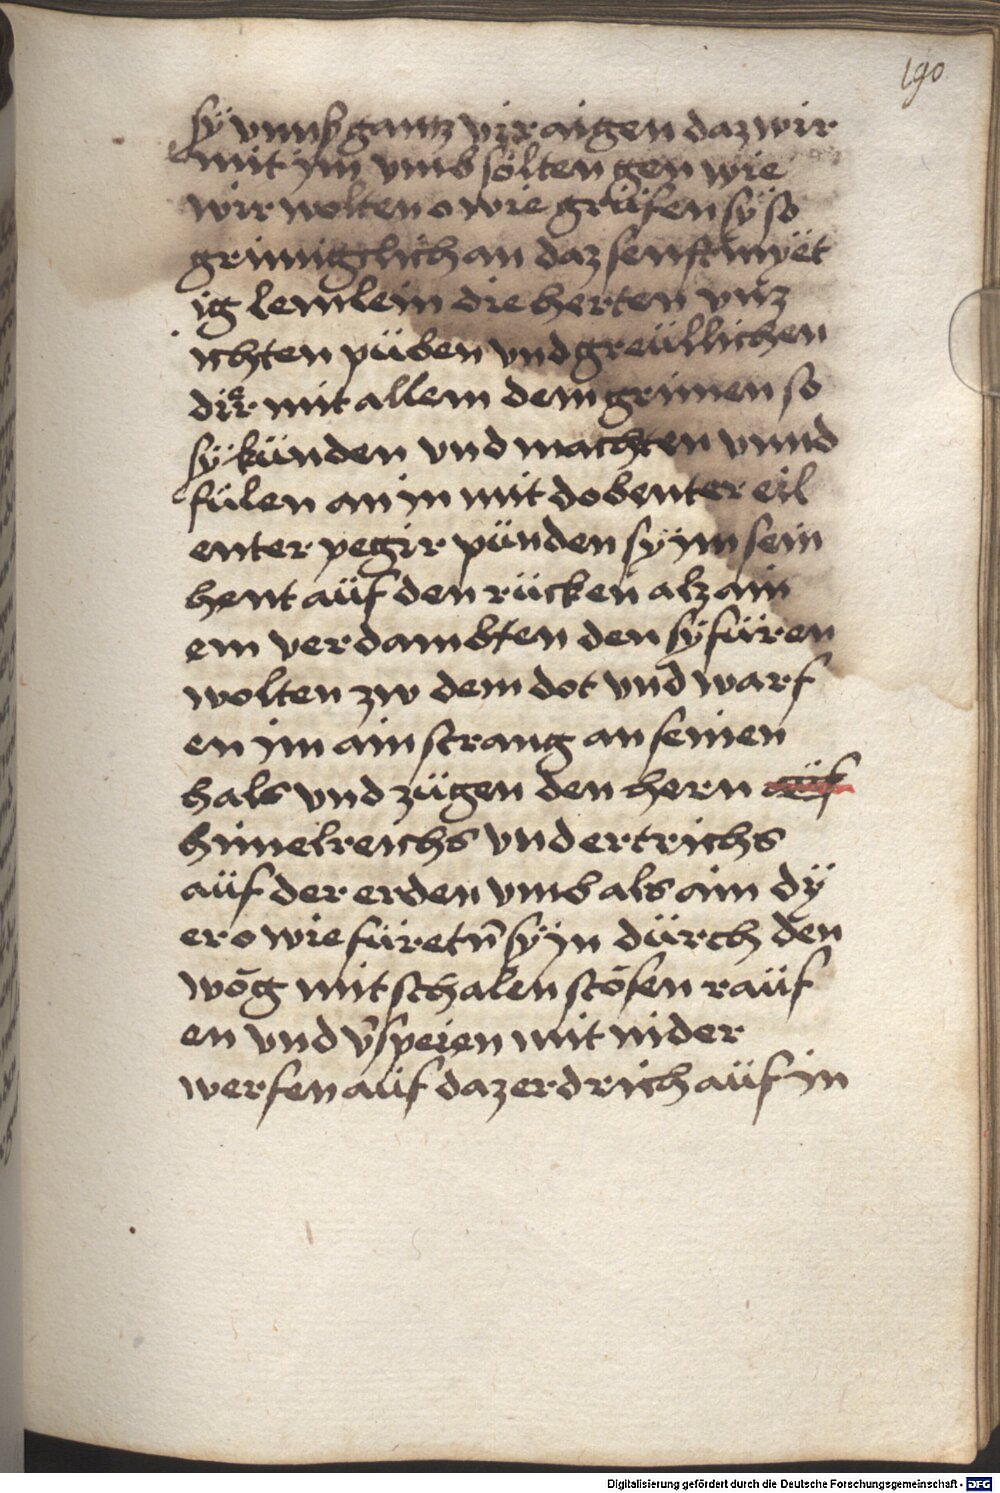 190
sÿ vnnß gantz vir aigen daz wir
mit jm vmb sölten gen wie
wir wolten o wie grüfen sÿ so
grimigclich an daz senftmÿët
ig lemlein die herten vnz
ichten püben vnd greüllichen
dier mit allem dem grimen so
sÿ künden vnd machten vnnd
fülen an in mit dobenter eil
enter pegir pünden sÿ jm sein
hent aüf den rücken alz ain
em verdambten den sÿ füren
wolten zw dem dot vnd warf
en jm ain strang an seinen
hals vnd zügen den hern aüf
himelreichs vnd ertrichs
aüf der erden vmb als aim dÿ
er o wie füretn̄ sÿ jn dürch den
wög mit schalen stösen raüf
en vnd v̄speien mit nider
werfen aüf daz erdrich aüf in
Digitalisierung gefördert durch die Deutsche Forschungsgemeinschaft - DFG